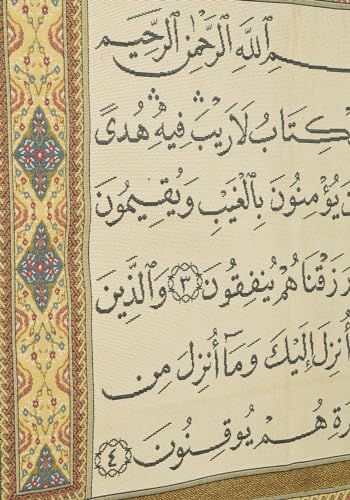 ـم ٱللَّهِ ٱلرَّحْمَٰنِ ٱلرَّحِيمِ
ـكِتَابُ لَا رَيْبَ فِيهِ هُدًى
ـنَ يُؤْمِنُونَ بِٱلْغَيْبِ وَيُقِيمُونَ
رَزَقْنَاهُمْ يُنْفِقُونَ ٣ وَٱلَّذِينَ
أُنْزِلَ إِلَيْكَ وَمَا أُنْزِلَ مِن
ـرَةِ هُمْ يُوقِنُونَ ٤